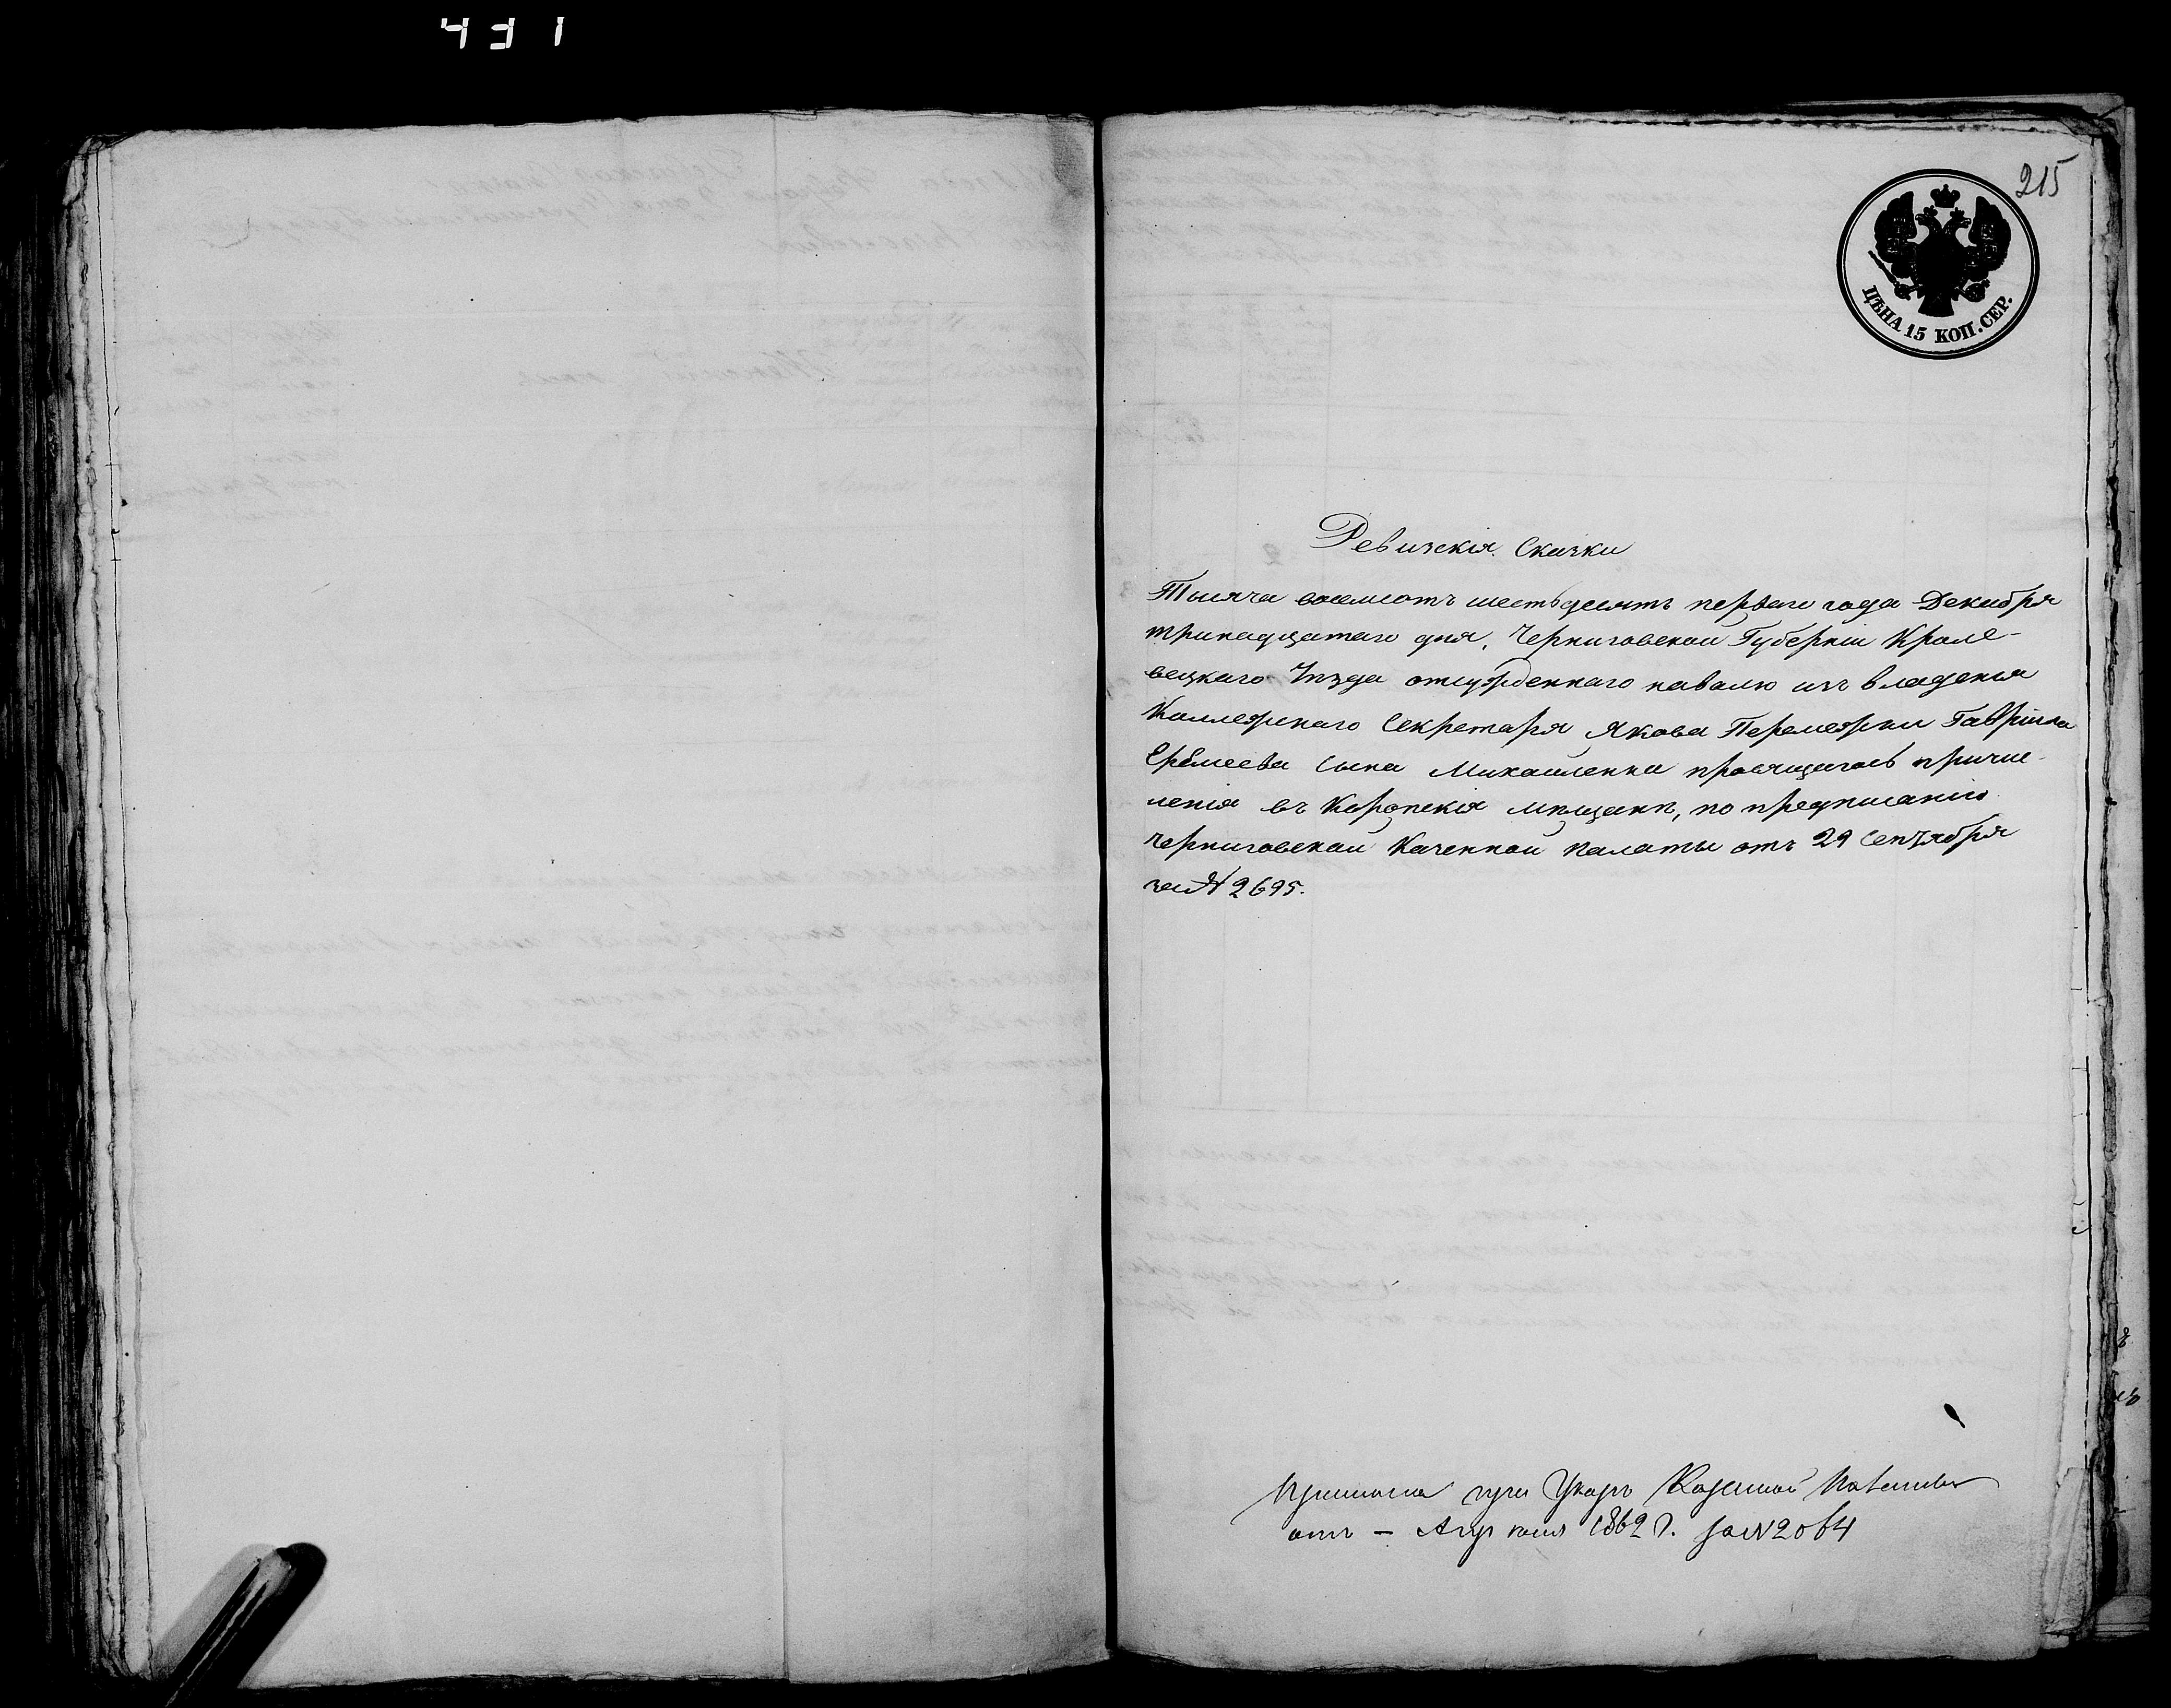 431
215
ЦѢНА 15 КОП. СЕР.
Ревизскія Сказки
Тысяча восемсотъ шестьдесятъ перваго года Декабря
тринадцатаго дня, Черниговской Губерніи Кроле-
вецкаго Уѣзда отсужденнаго наволю изъ владенія
Коллежскаго Секретаря Якова Гавріила
Еремеева сына Михайленка просящагось причис-
ленія въ Коропскія мѣщане, по предписанію
Черниговской Казенной Палаты отъ 29 Сентября
за № 2695.
при Указѣ Казенной Палаты
отъ – Апреля 1862 г. за № 2064